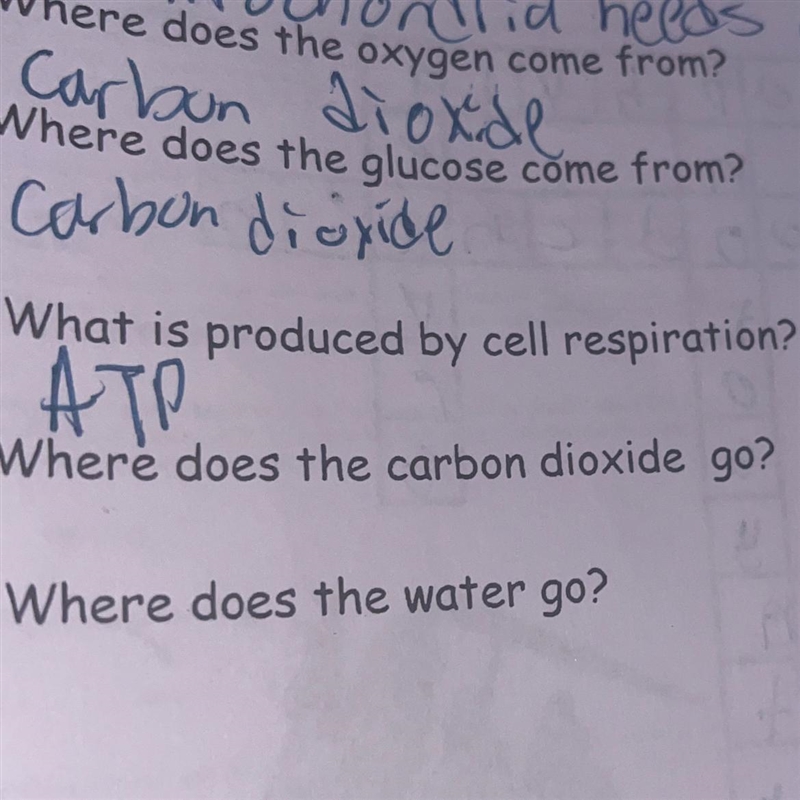 mitochondria needs
Where does the oxygen come from?
Carbon dioxide
Where does the glucose come from?
Carbon dioxide
What is produced by cell respiration?
ATP
Where does the carbon dioxide go?
Where does the water go?